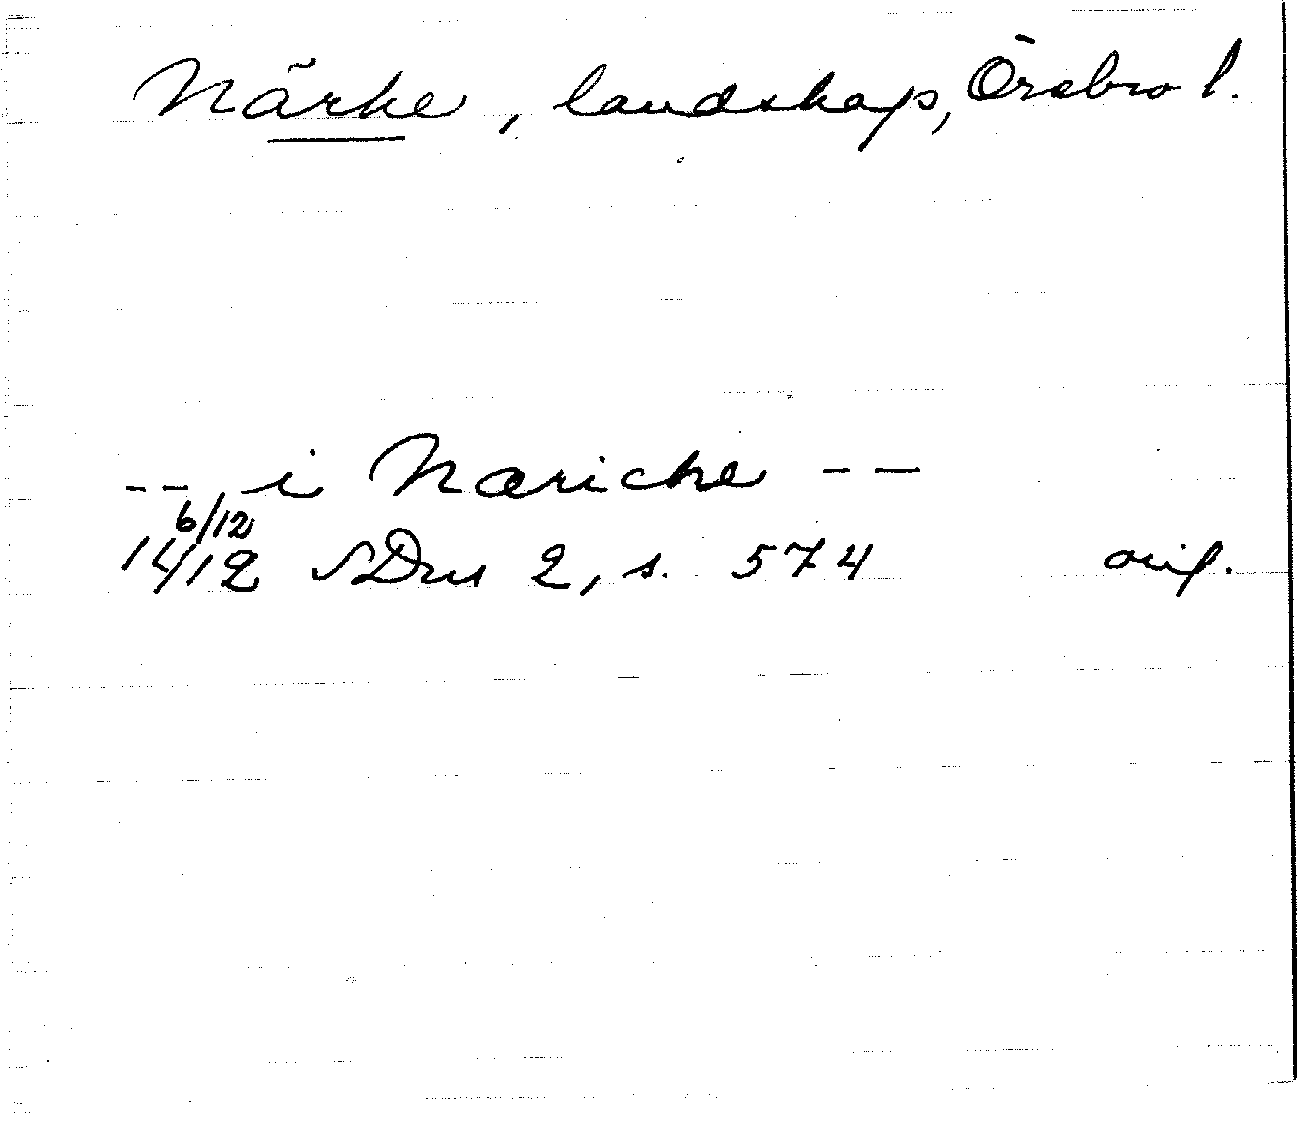 Närke, landskap, Örebro l.
-- i Næricke --
6/12
14/12 SDns 2, s. 574 orig.